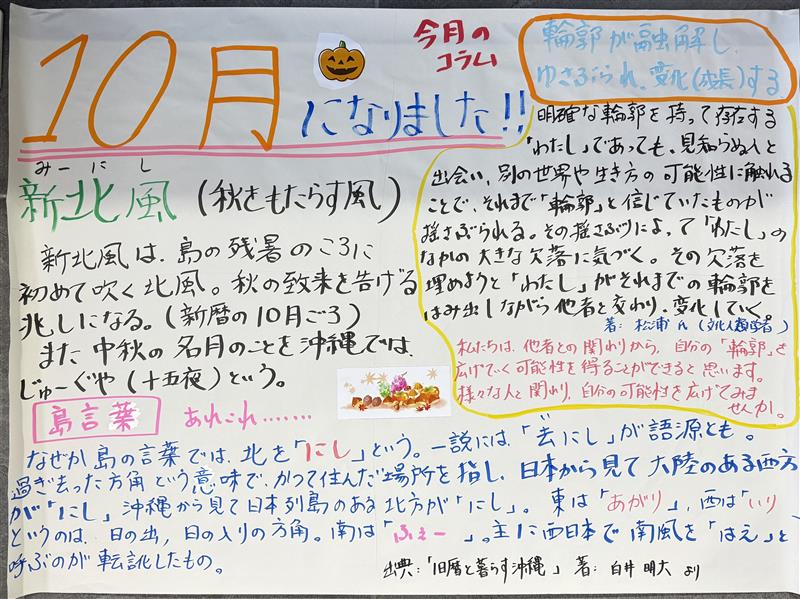 10月になりました!!
みーにし
新北風(秋をもたらす風)
新北風は、島の残暑のころに
初めて吹く北風。秋の致来を告げる
兆しになる。(新暦の10月ごろ)
また中秋の名月のことを沖縄では、
じゅーぐや(十五夜)という。
今月の
コラム
輪郭が融解し、
ゆさぶられ、変化(成長)する
明確な輪郭を持って存在する
「わたし」であっても、見知らぬ人と
出会い、別の世界や生き方の可能性に触れる
ことで、それまで「輪郭」と信じていたものが
揺さぶられる。その揺さぶりによって「わたし」の
なかの大きな欠落に気づく。その欠落を
埋めようと「わたし」がそれまでの輪郭を
はみ出しながら他者と交わり、変化していく。
著:松浦 氏(文化人類学者)
私たちは、他者との関わりから、自分の「輪郭」を
広げていく可能性を得ることができると思います。
様々な人と関わり、自分の可能性を広げてみま
せんか。
島言葉 あれこれ.......
なぜか島の言葉では、北を「にし」という。一説には、「去にし」が語源とも。
過ぎ去った方角という意味で、かつて住んだ場所を指し、日本から見て大陸のある西方
が「にし」沖縄から見て日本列島のある北方が「にし」。東は「あがり」、西は「いり
というのは、日の出、日の入りの方角。南は「ふぇー」。主に西日本で南風を「はえ」と
呼ぶのが転訛したもの。
出典:「旧暦と暮らす沖縄」著:白井明大 より